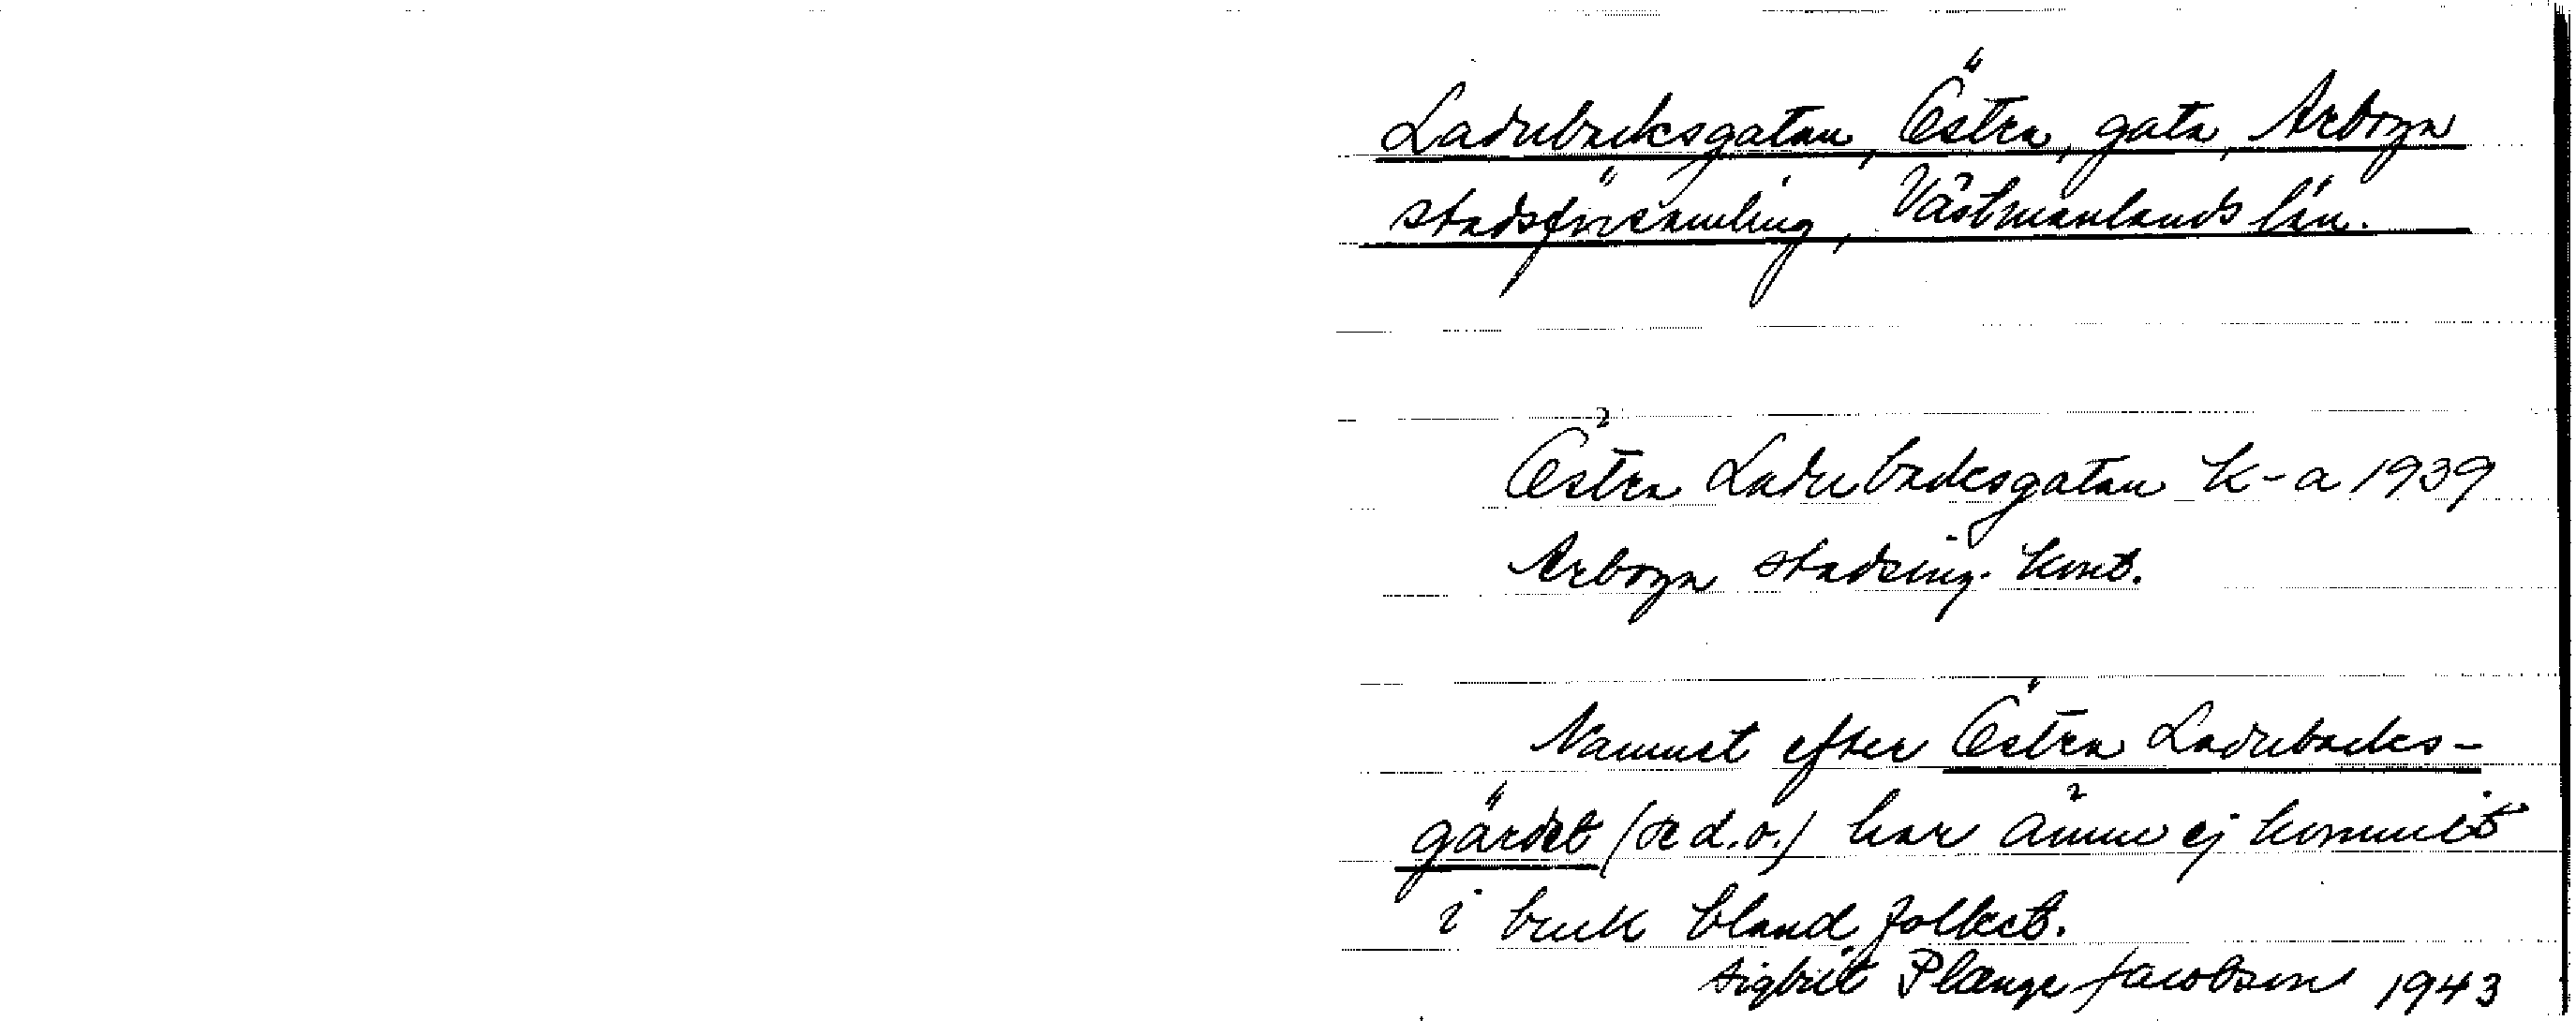 Ladubacksgatan, Östra, gata, Arboga
stadsförsamling, Västmanlands län.
Östra Ladubacksgatan K-a 1939
Arboga stadsing. kont.
Namnet efter Östra Ladubacks-
gärdet (se d.o.) har ännu ej kommit
i bruk bland folket.
Sigbrit Plænge Jacobson 1943